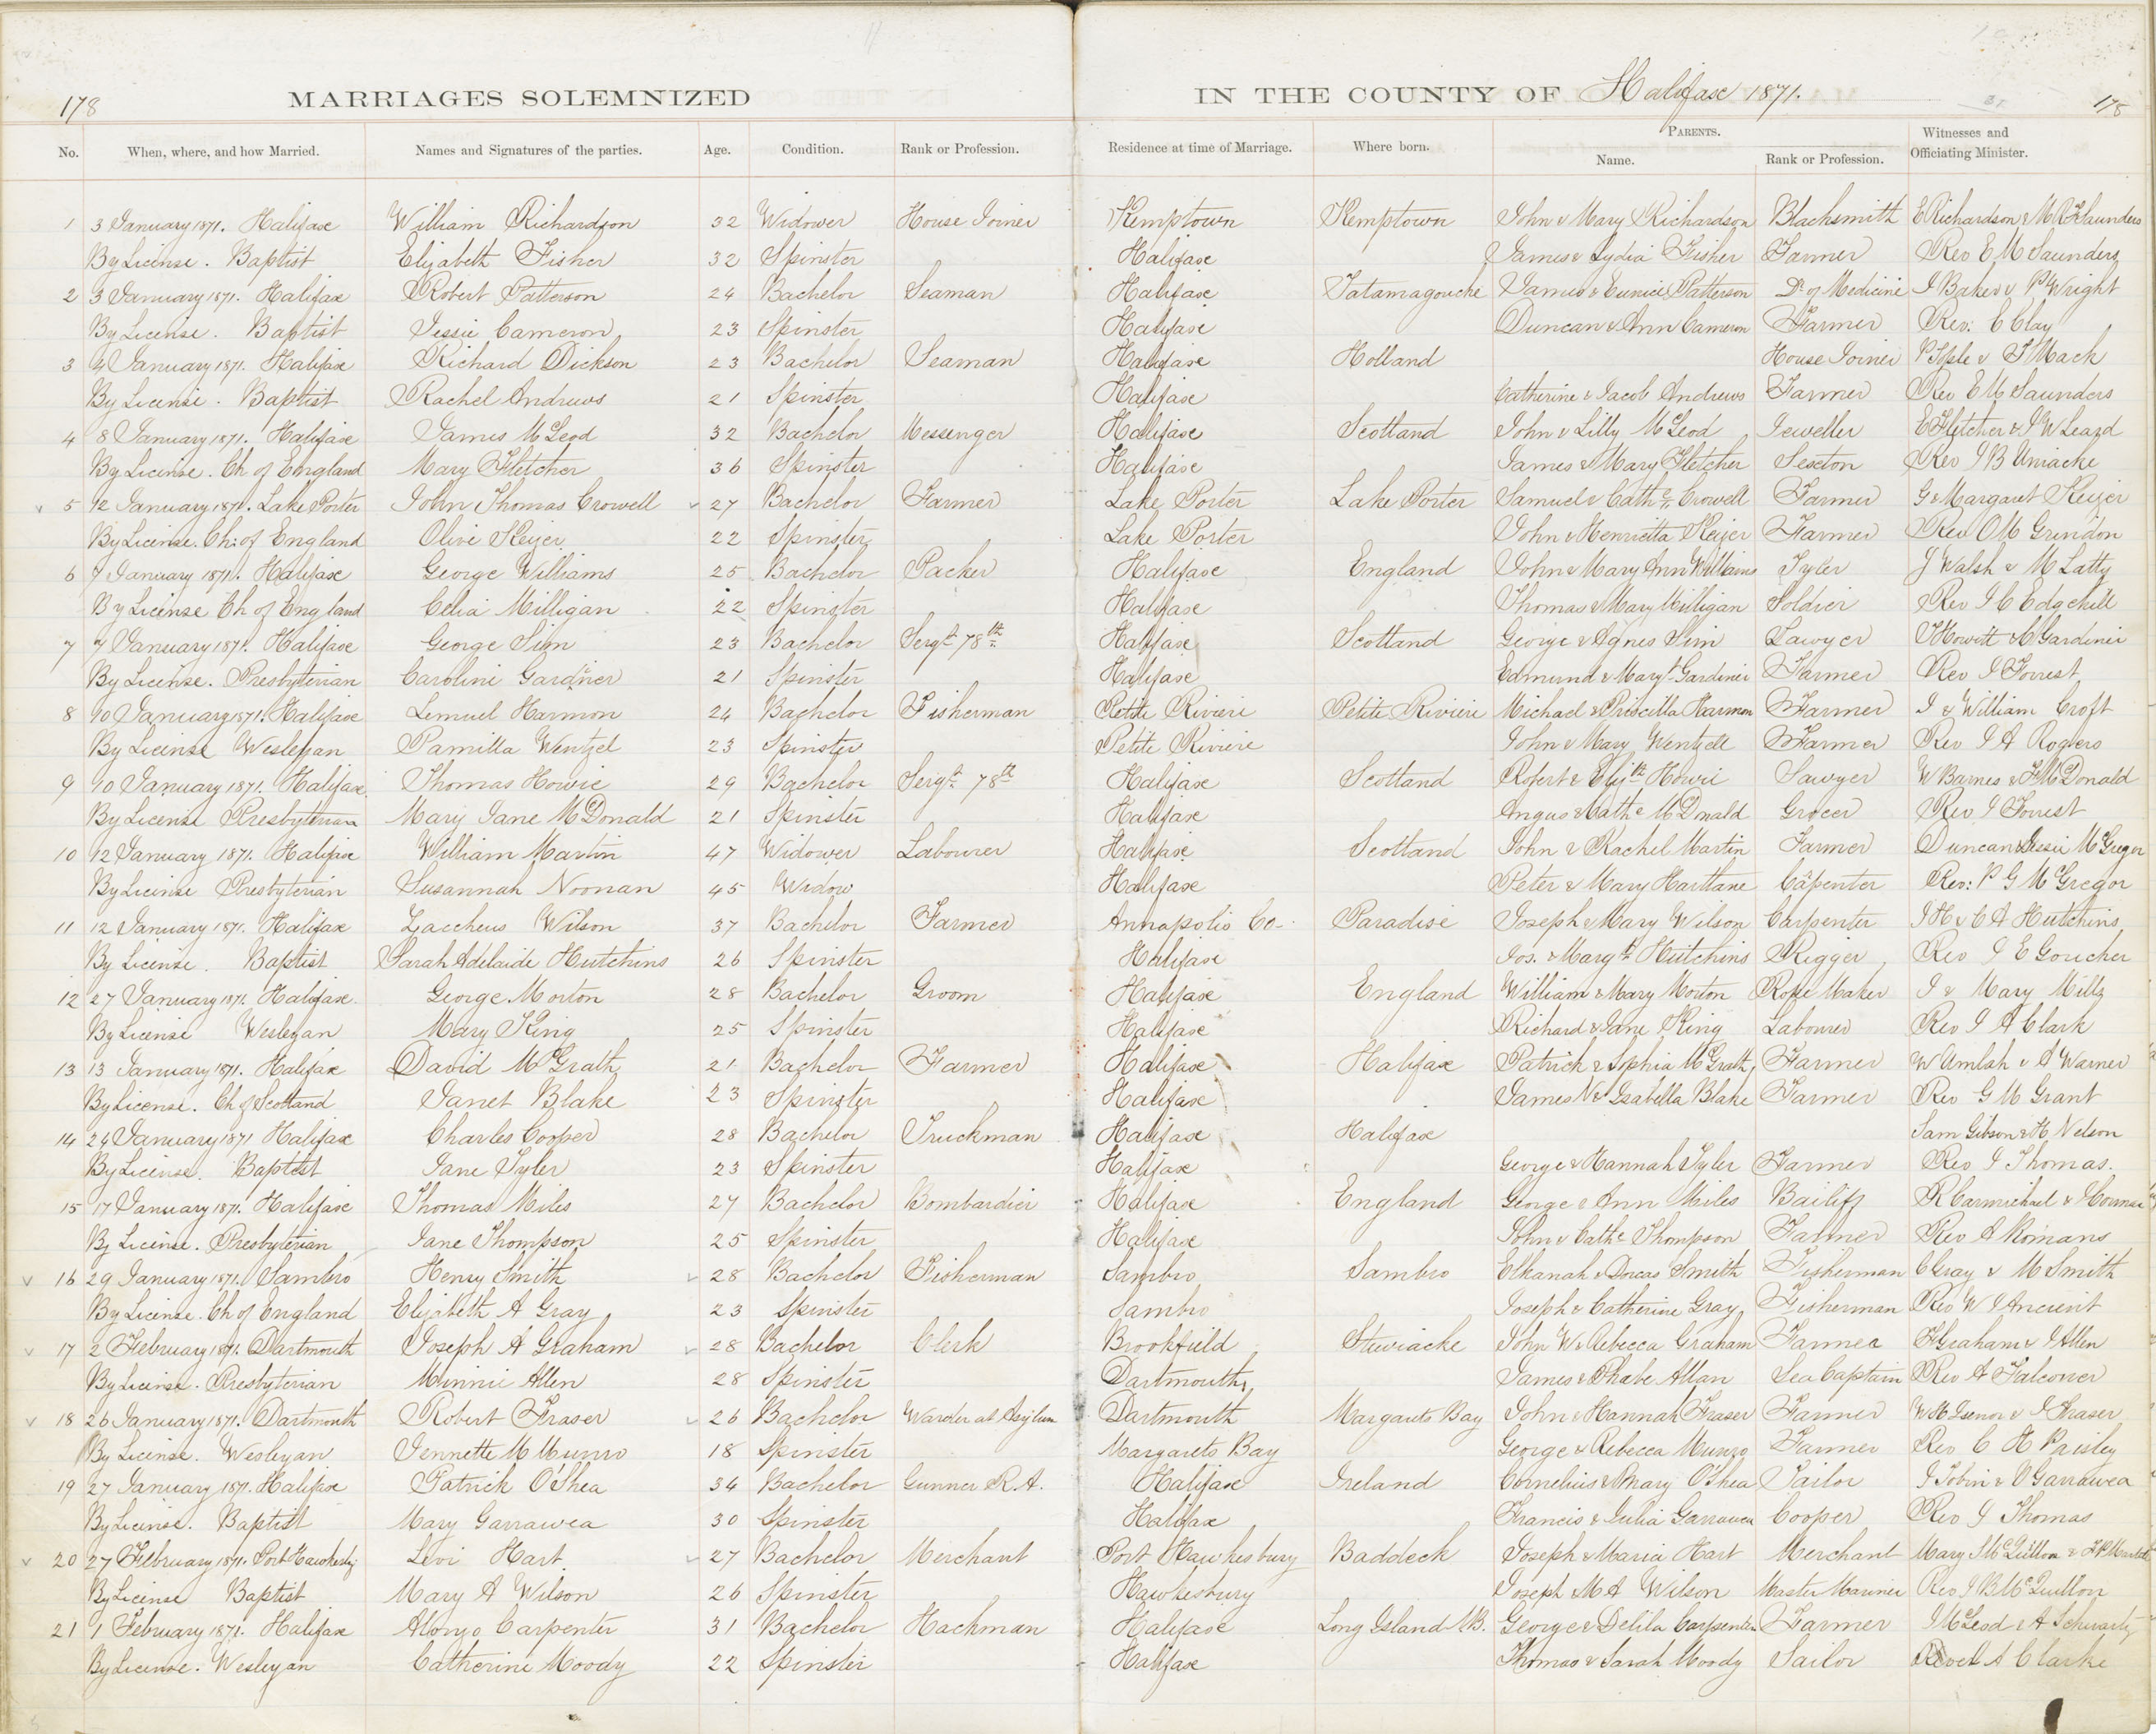 178 MARRIAGES SOLEMNIZED IN THE COUNTY OF Halifax 1871. 178
No. When, where, and how Married. Names and Signatures of the parties. Age. Condition. Rank or Profession. Residence at time of Marriage. Where born. PARENTS. Name. Rank or Profession. Witnesses and Officiating Minister.
1 3 January 1871. Halifax William Richardson 32 Widower House Joiner Kemptown Kemptown John & Mary Richardson Blacksmith E Richardson & M R Saunders
By License. Baptist Elizabeth Fisher 32 Spinster Halifax James & Lydia Fisher Farmer Rev E M Saunders
2 3 January 1871. Halifax Robert Patterson 24 Bachelor Seaman Halifax Tatamagouche James & Eunice Patterson Dr of Medicine I Baker & P Wright
By License. Baptist Jessie Cameron 23 Spinster Halifax Duncan & Ann Cameron Farmer Rev. C Clay
3 4 January 1871. Halifax Richard Dickson 23 Bachelor Seaman Halifax Holland House Joiner & S Mack
By License. Baptist Rachel Andrews 21 Spinster Halifax Catherine & Jacob Andrews Farmer Rev E M Saunders
4 8 January 1871. Halifax James McLeod 32 Bachelor Messenger Halifax Scotland John & Lilly McLeod Jeweller E Fletcher & J W Leard
By License. Ch of England Mary Fletcher 36 Spinster Halifax James & Mary Fletcher Sexton Rev J B Uniacke
5 12 January 1871. Lake Porter John Thomas Crowell 27 Bachelor Farmer Lake Porter Lake Porter Samuel & Cathe Crowell Farmer G & Margaret Keizer
By License. Ch: of England Olive Keizer 22 Spinster Lake Porter John & Henrietta Keizer Farmer Rev O M Grindon
6 7 January 1871. Halifax George Williams 25 Bachelor Packer Halifax England John & Mary Ann Williams Tyler J Walsh & M Latty
By License Ch of England Celia Milligan 22 Spinster Halifax Thomas & Mary Milligan Soldier Rev J C Edgehill
7 7 January 1871. Halifax George Sim 23 Bachelor Sergt 78th Halifax Scotland George & Agnes Sim Lawyer J Howitt & C Gardiner
By License. Presbyterian Caroline Gardner 21 Spinster Halifax Edmund & Maryt Gardiner Farmer Rev J Forrest
8 10 January 1871. Halifax Lemuel Harmon 24 Bachelor Fisherman Petite Riviere Petite Riviere Michael & Priscilla Harmon Farmer I & William Croft
By License Wesleyan Pamilla Wentzel 23 Spinster Petite Riviere John & Mary Wentzell Farmer Rev J A Rogers
9 10 January 1871. Halifax Thomas Howie 29 Bachelor Sergt 78th Halifax Scotland Robert & Elizth Howie Sawyer W Barnes & F McDonald
By License Presbyterian Mary Jane McDonald 21 Spinster Halifax Angus & Cathe McDonald Grocer Rev J Forrest
10 12 January 1871. Halifax William Martin 47 Widower Labourer Halifax Scotland John & Rachel Martin Farmer Duncan & Jessie McGregor
By License Presbyterian Susannah Noonan 45 Widow Halifax Peter & Mary Hartlane Capenter Rev: P G McGregor
11 12 January 1871. Halifax Zaccheus Wilson 37 Bachelor Farmer Annapolis Co. Paradise Joseph & Mary Wilson Carpenter J H & C A Hutchins
By License. Baptist Sarah Adelaide Hutchins 26 Spinster Halifax Jos. & Margt Hutchins Rigger Rev J E Goucher
12 27 January 1871. Halifax George Morton 28 Bachelor Groom Halifax England William & Mary Morton Rope Maker J & Mary Mills
By License Wesleyan Mary King 25 Spinster Halifax Richard & Jane King Labourer Rev J A Clark
13 13 January 1871. Halifax David McGrath 21 Bachelor Farmer Halifax Halifax Patrick & Sophia McGrath Farmer W Umlah & S Warner
By License. Ch of Scotland Janet Blake 23 Spinster Halifax James N & Isabella Blake Farmer Rev G M Grant
14 24 January 1871 Halifax Charles Cooper 28 Bachelor Truckman Halifax Halifax Sam Gibson & H Nelson
By License. Baptist Jane Tyler 23 Spinster Halifax George & Hannah Tyler Farmer Rev J Thomas.
15 17 January 1871. Halifax Thomas Miles 27 Bachelor Bombardier Halifax England George & Ann Miles Bailiff R Carmichael &
By License. Presbyterian Jane Thompson 25 Spinster Halifax John & Cathe Thompson Farmer Rev A Romans
16 29 January 1871. Sambro Henry Smith 28 Bachelor Fisherman Sambro Sambro Elkanah & Dorcas Smith Fisherman C Gray & M Smith
By License. Ch of England Elizabeth A Gray 23 Spinster Sambro Joseph & Catherine Gray Fisherman Rev W J Ancient
17 2 February 1871. Dartmouth Joseph A Graham 28 Bachelor Clerk Brookfield Stewiacke John W & Rebecca Graham Farmer F Graham & J Allen
By License. Presbyterian Minnie Allen 28 Spinster Dartmouth James & Phabe Allan Sea Captain Rev A Falconer
18 26 January 1871. Dartmouth Robert Fraser 26 Bachelor Warder at Asylum Dartmouth Margarets Bay John & Hannah Fraser Farmer & J Fraser
By License. Wesleyan Jennette M Munro 18 Spinster Margarets Bay George & Rebecca Munro Farmer Rev C H Paisley
19 27 January 1871. Halifax Patrick O'Shea 34 Bachelor Gunner R.A. Halifax Ireland Cornelius & Mary O'Shea Tailor J Tobin & O Garrawea
By License. Baptist Mary Garrawea 30 Spinster Halifax Francis & Julia Garrawea Cooper Rev J Thomas
20 27 February 1871. Port Hawkesby Levi Hart 27 Bachelor Merchant Port Hawkesbury Baddeck Joseph & Maria Hart Merchant Mary S McQuillon &
By License Baptist Mary A Wilson 26 Spinster Hawkesbury Joseph & M A Wilson Master Mariner Rev J B McQuillon
21 1 February 1871. Halifax Alonzo Carpenter 31 Bachelor Hackman Halifax Long Island N.B. George & Delila Carpenter Farmer J McLeod & A Schwartz
By License. Wesleyan Catherine Moody 22 Spinster Halifax Thomas & Sarah Moody Sailor A Clarke